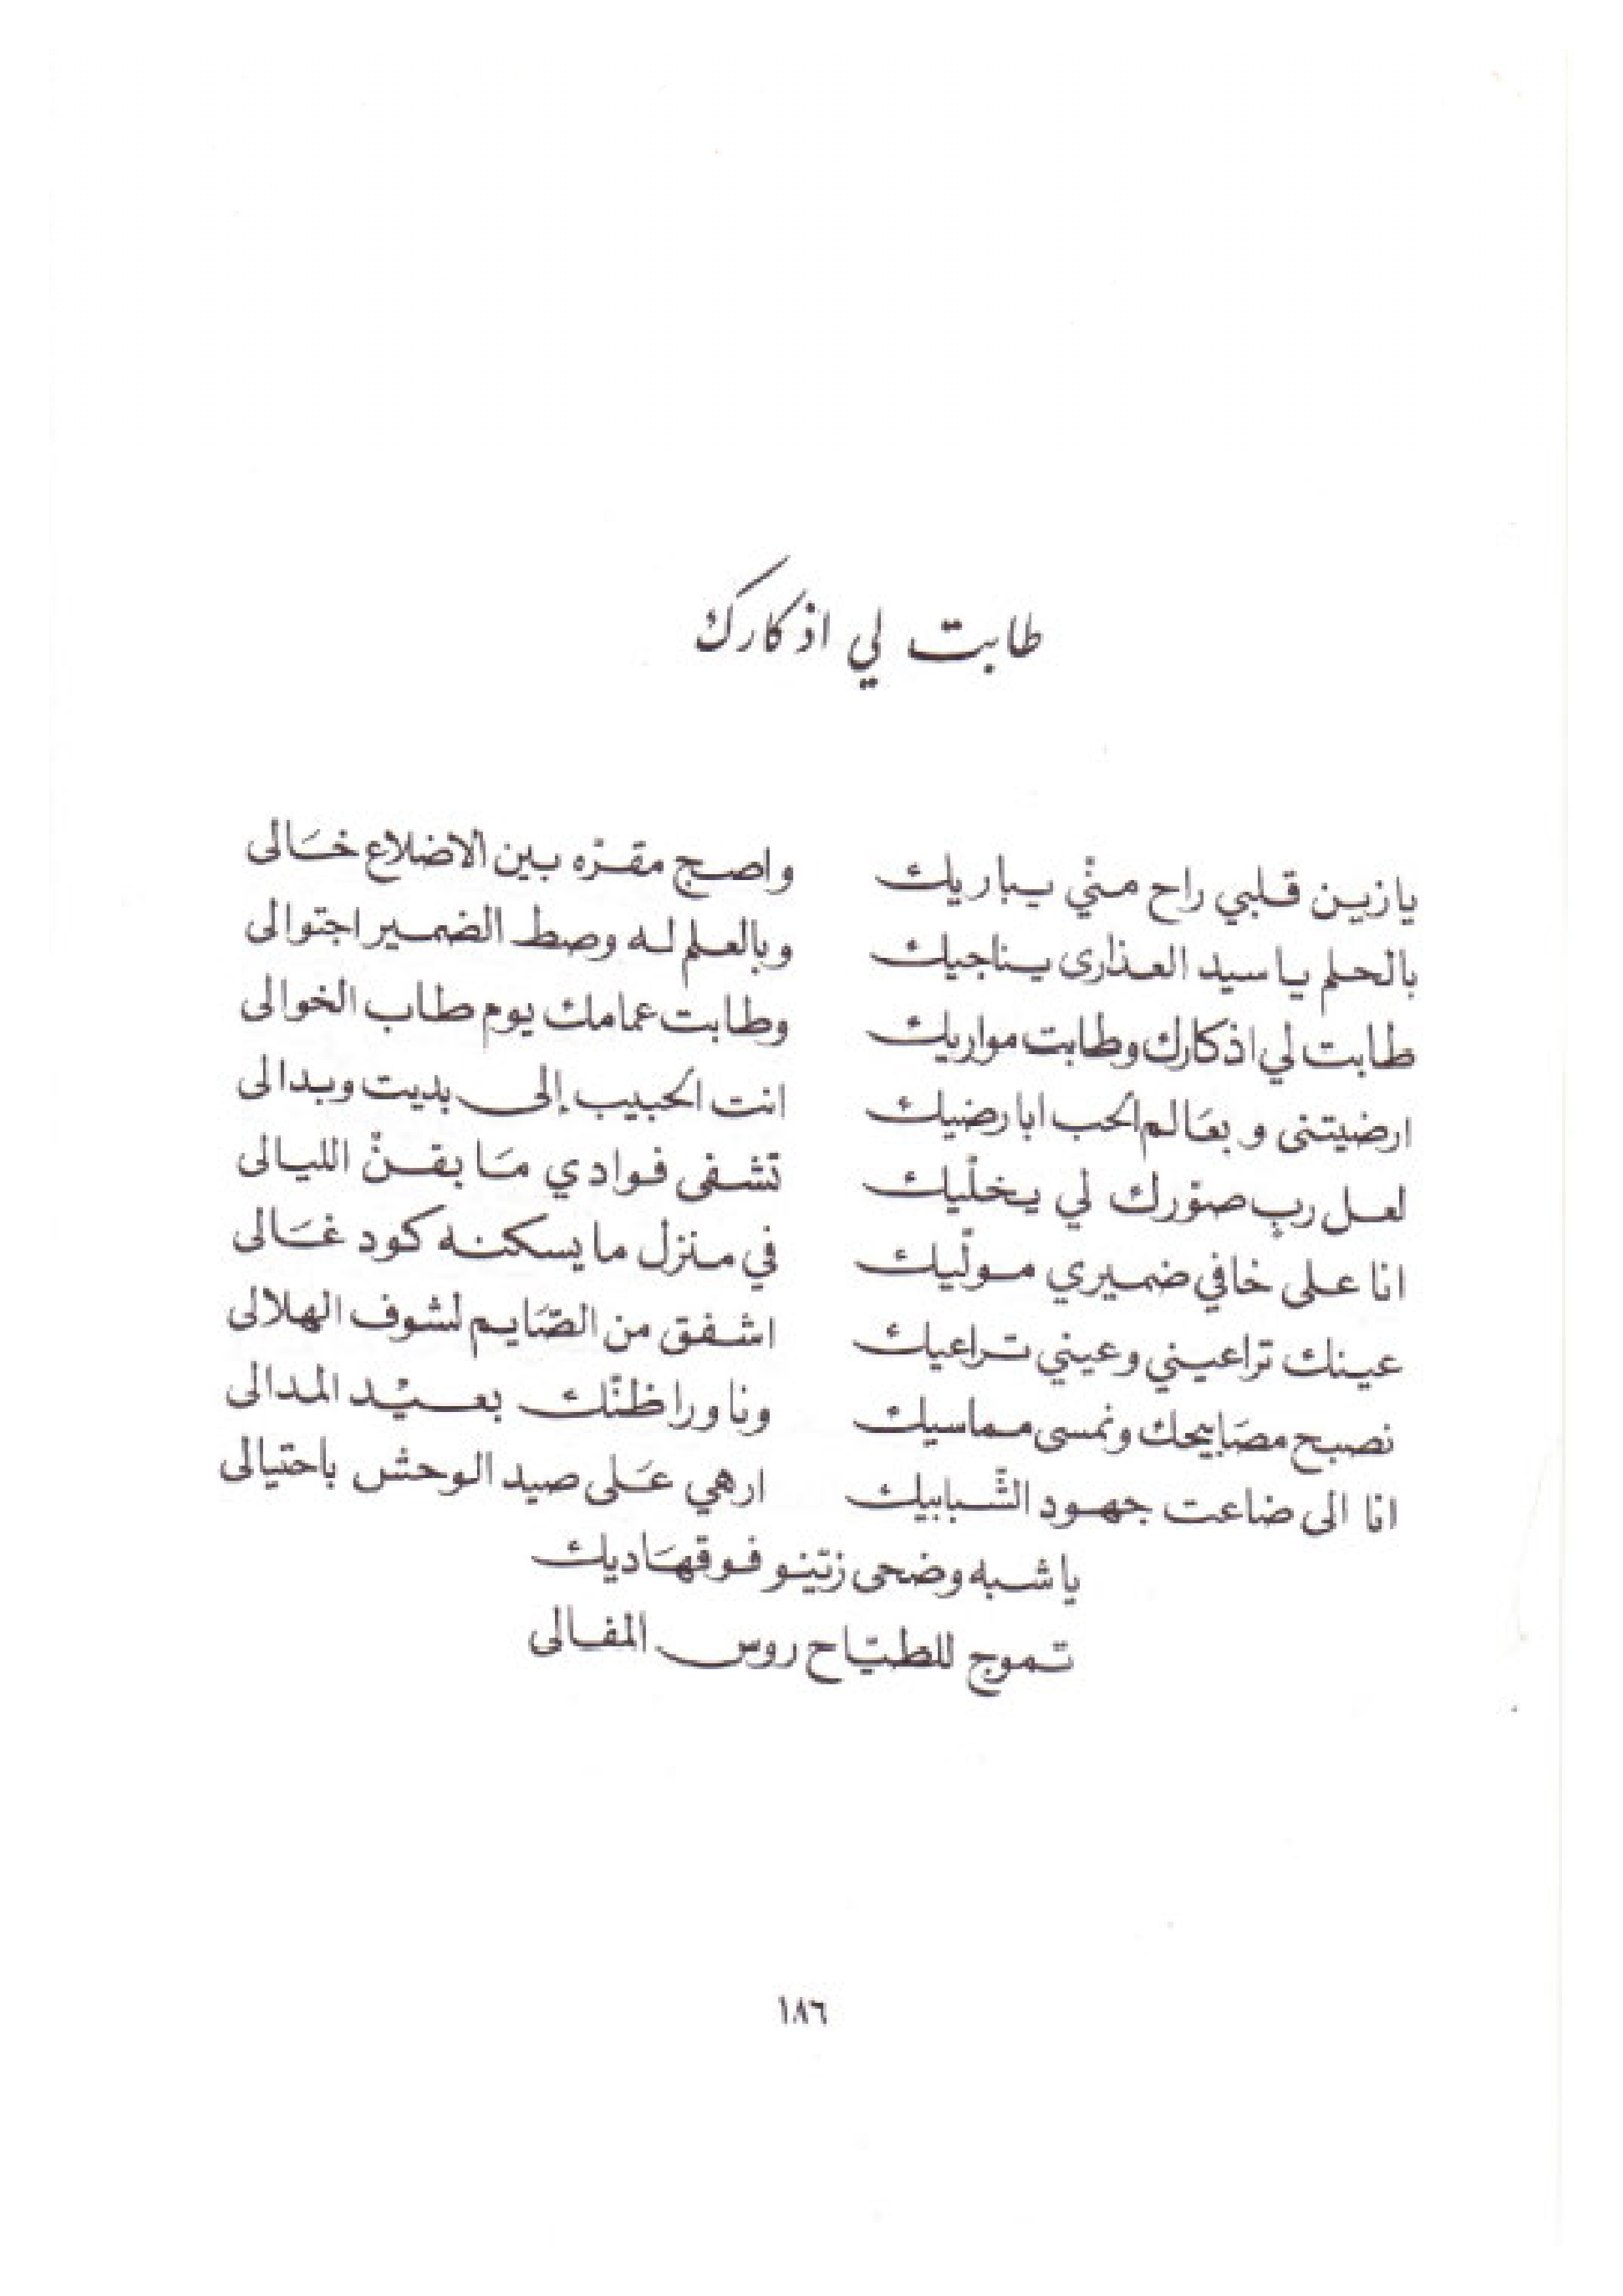 طابت لي اذكارك
يا زين قلبي راح منّي يباريك واصبح مقرّه بين الاضلاع خَالى
بالحلم يا سيد العذارى يناجيك وبالعلم له وصط الضمير اجتوالى
طابت لي اذكارك وطابت مواريك وطابت عمامك يوم طاب الخوالى
ارضيتنى و بعَالم الحب ابا رضيك انت الحبيب إلى بديت وبدالى
لعل ربٍ صوّرك لي يخلّيك تشفى فوادي مَا بقنّ الليالى
انا على خافي ضميري مولّيك في منزل ما يسكنه كود غَالى
عينك تراعيني وعيني تراعيك اشفق من الصّايم لشوف الهلالى
نصبح مصَابيحك ونمسى مماسيك ونا ورا ظنّك بعيْد المدالى
انا الى ضاعت جهود الشّبابيك ارهي عَلى صيد الوحش باحتيالى
يا شبه وضحى زيّنو فوقهَاديك
تموج للطيّاح روس المفالى
١٨٦